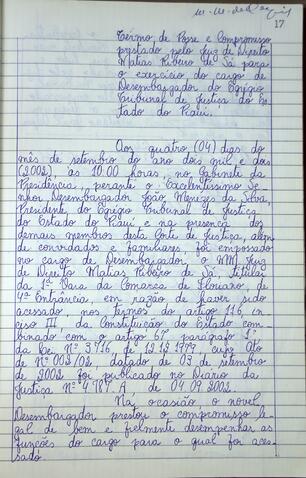 17
Termo de Posse e Compromisso
prestado pelo Juiz de Direito
Matias Ribeiro de Sá para
o exercício do cargo de
Desembargador do Egrégio
Tribunal de Justiça do Es-
tado do Piauí.
Aos quatro (04) dias do
mês de setembro do ano dois mil e dois
(2002), às 10:00 horas, no Gabinete da
Presidência, perante o Excelentíssimo Se-
nhor Desembargador João Menezes da Silva,
Presidente do Egrégio Tribunal de Justiça
do Estado do Piauí e na presença dos
demais membros desta Corte de Justiça, além
de convidados e familiares, foi empossado
no cargo de Desembargador o MM. Juiz
de Direito Matias Ribeiro de Sá, titular
da 1ª Vara da Comarca de Floriano, de
4ª Entrância, em razão de haver sido
acessado, nos termos do artigo 116, in-
ciso III, da Constituição do Estado com-
binado com o artigo 67, parágrafo 1º,
da Lei Nº 3.716, de 12.12.1979, cujo Ato
de Nº 002/02, datado de 03 de setembro
de 2002, foi publicado no Diário da
Justiça Nº 4.787. A de 04.09.2002.
Na ocasião o novel
Desembargador prestou o compromisso le-
gal de bem e fielmente desempenhar as
funções do cargo para o qual foi aces-
sado.